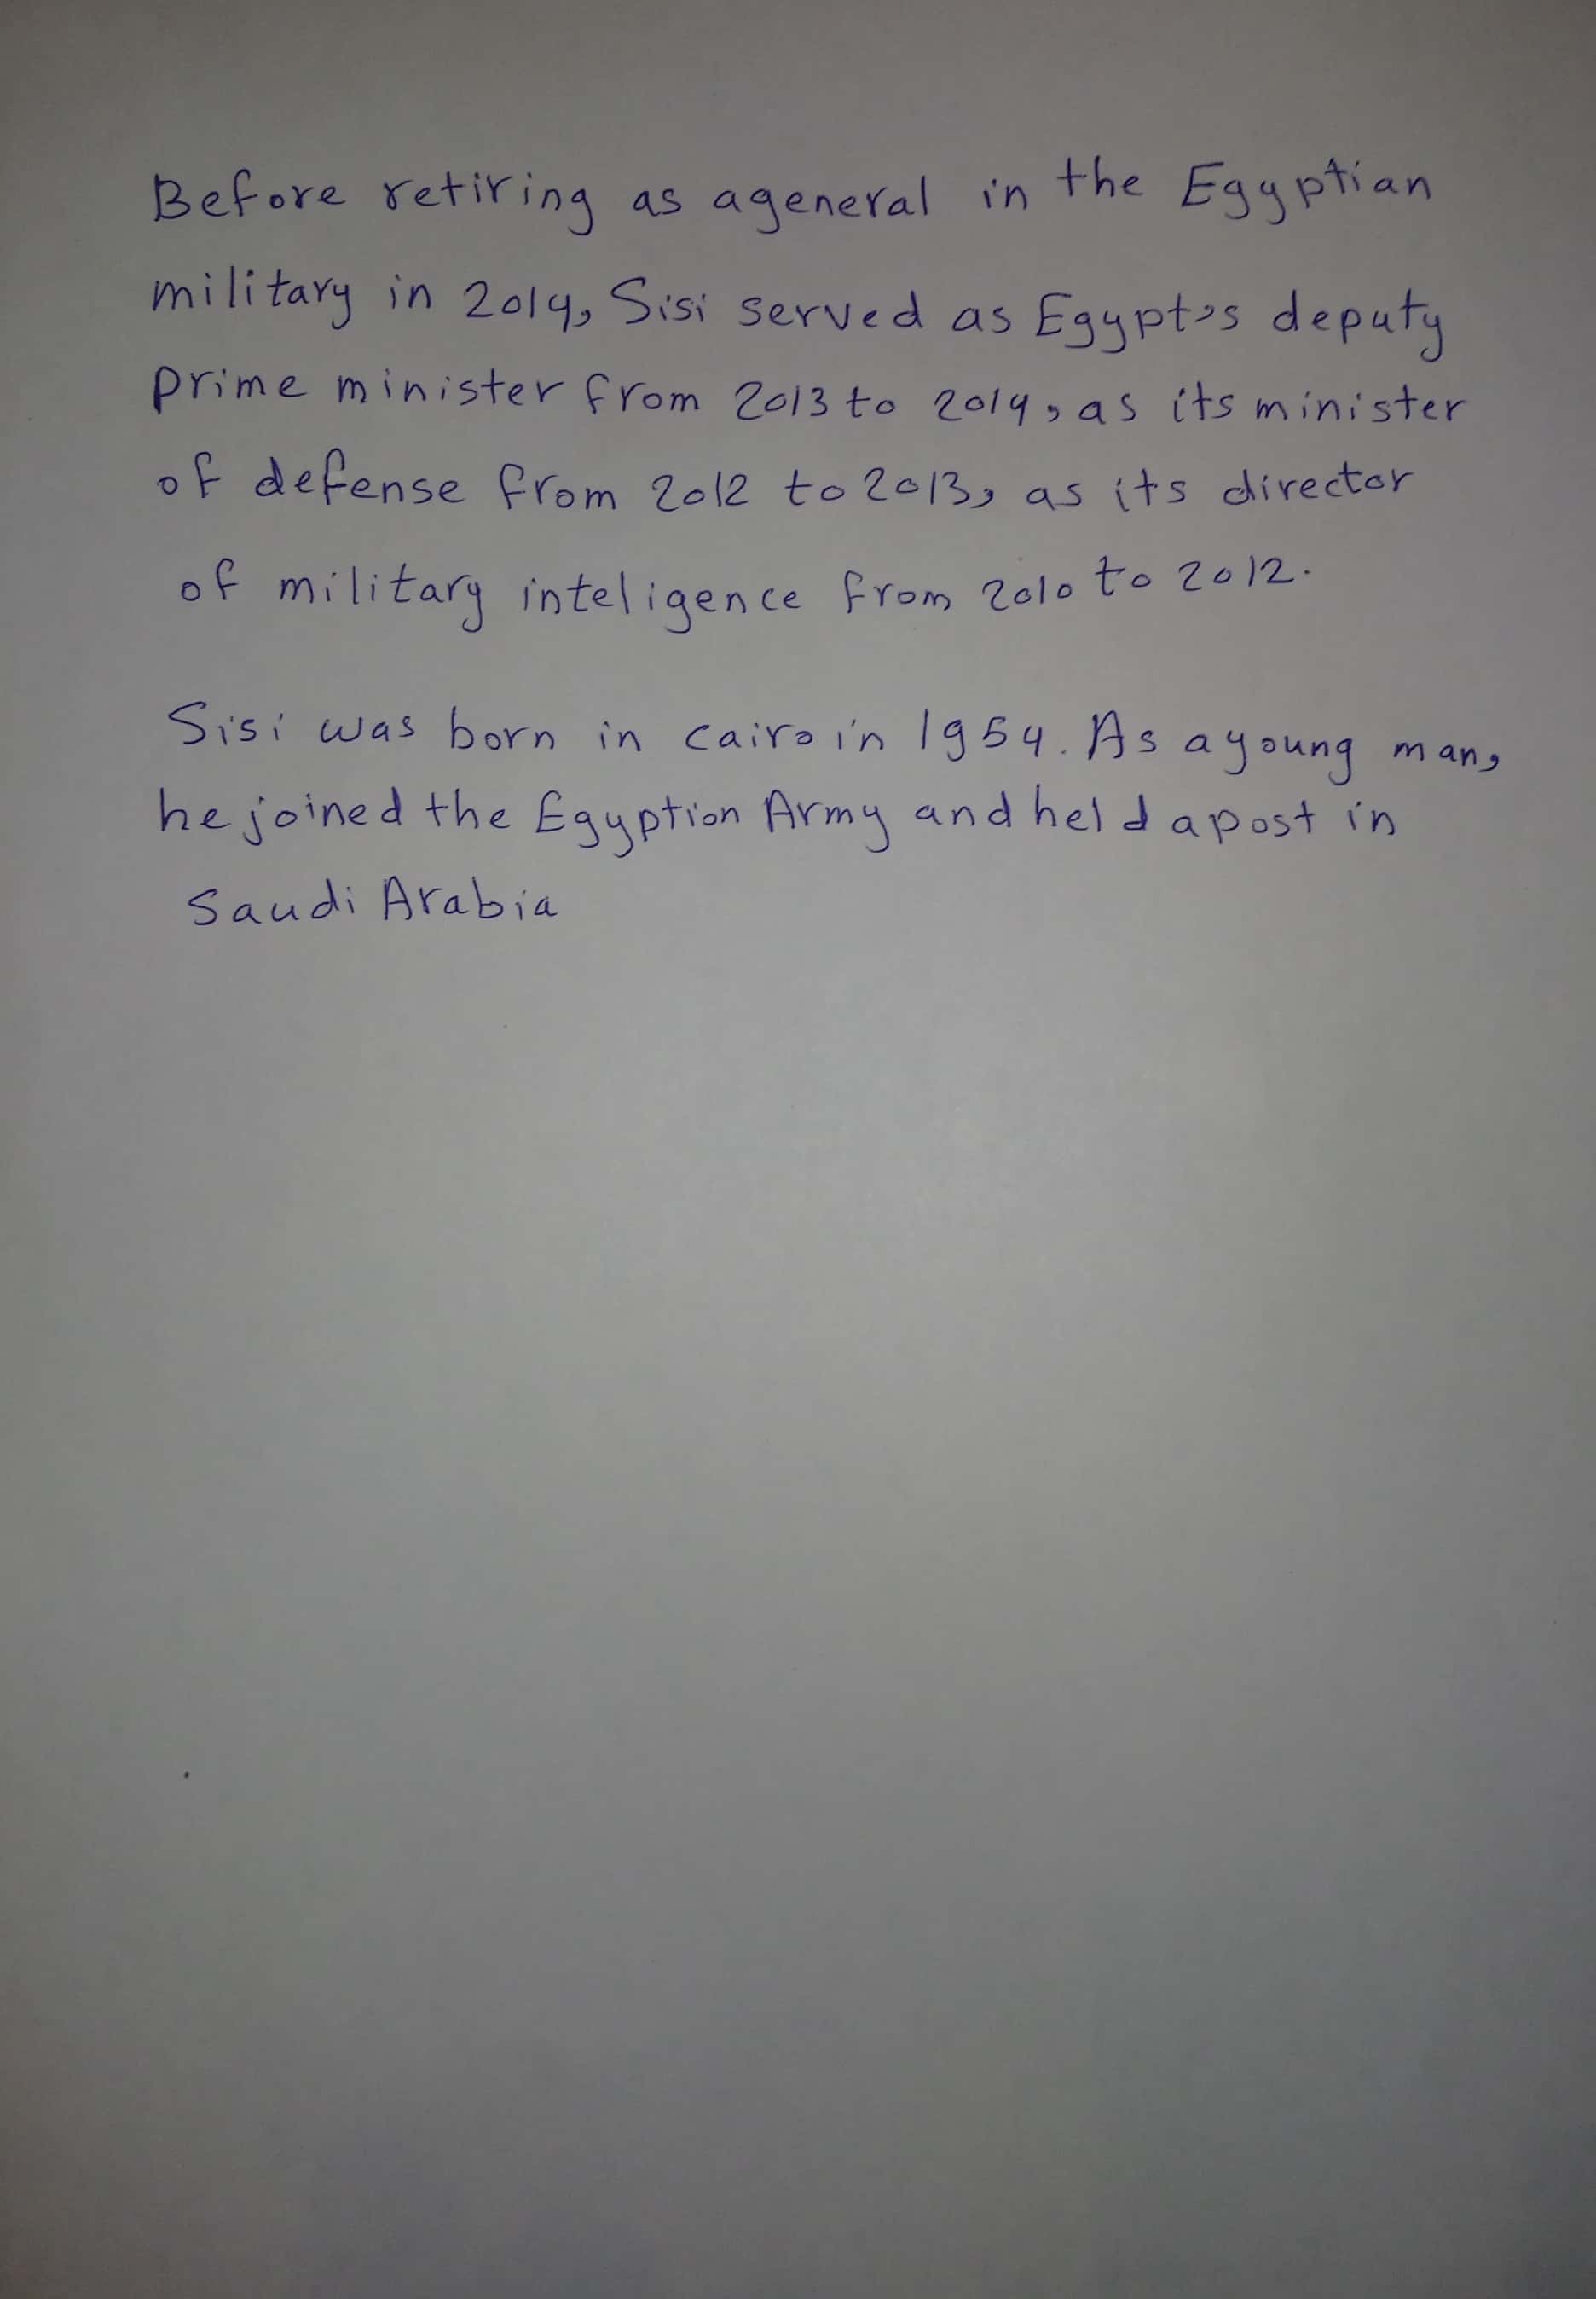 Before retiring as ageneral in the Egyptian
military in 2014, Sisi served as Egypt's deputy
prime minister from 2013 to 2014, as its minister
of defense from 2012 to 2013, as its director
of military inteligence from 2010 to 2012.
Sisi was born in cairo in 1954. As a young man,
he joined the Egyption Army and held a post in
Saudi Arabia